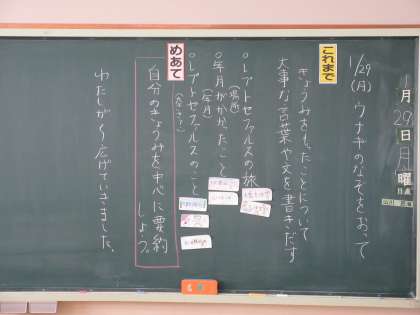 1月29日月曜
日直
1/29(月)
ウナギのなぞをおって
これまで
きょうみをもったことについて
大事な言葉や文を書きだす
○レプトセファルスの旅
(場所)
○年月がかかったこと
(年月)
○レプトセファルスのこと
めあて
自分のきょうみを中心に要約しよう。
わたしが〜広げていきました。